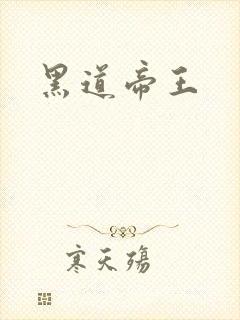 黑道帝王
寒天殇